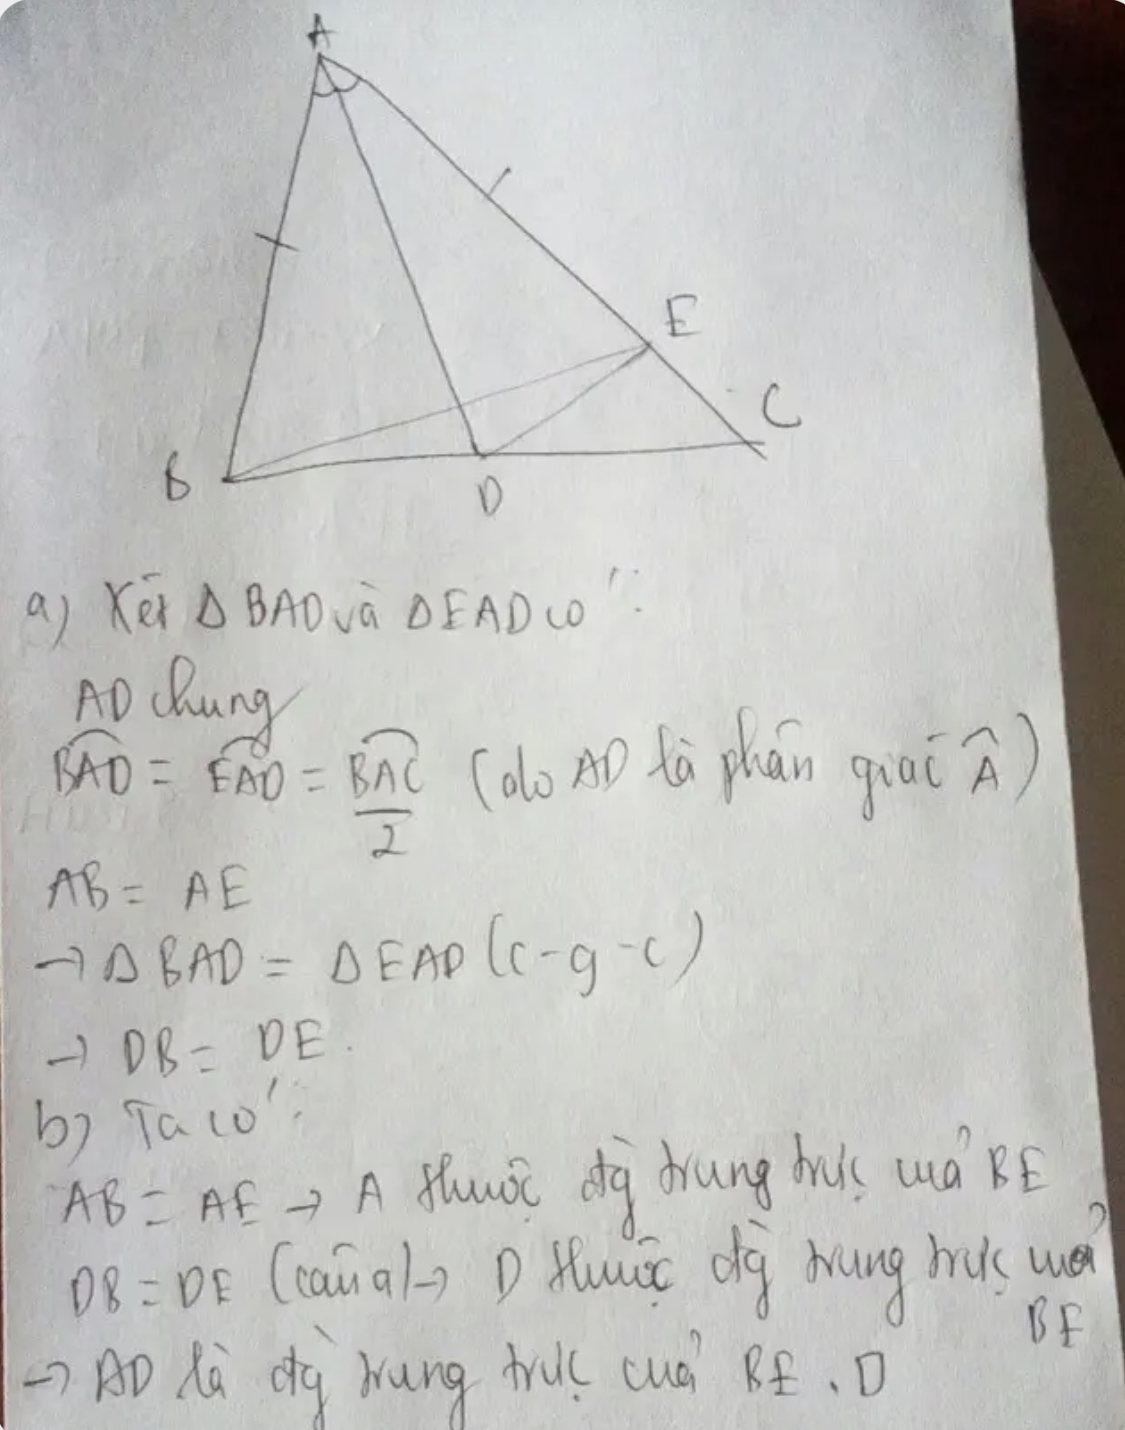 A
E
C
B
D
a) Xét Δ BAD và Δ EAD có :
AD chung
BAD = EAD = BAC/2 (do AD là phân giác Â)
AB = AE
→ Δ BAD = Δ EAD (c-g-c)
→ DB = DE.
b) Ta có :
AB = AE → A thuộc đg trung trực của BE
DB = DE (câu a) → D thuộc đg trung trực của
BE
→ AD là đg trung trực của BE . D